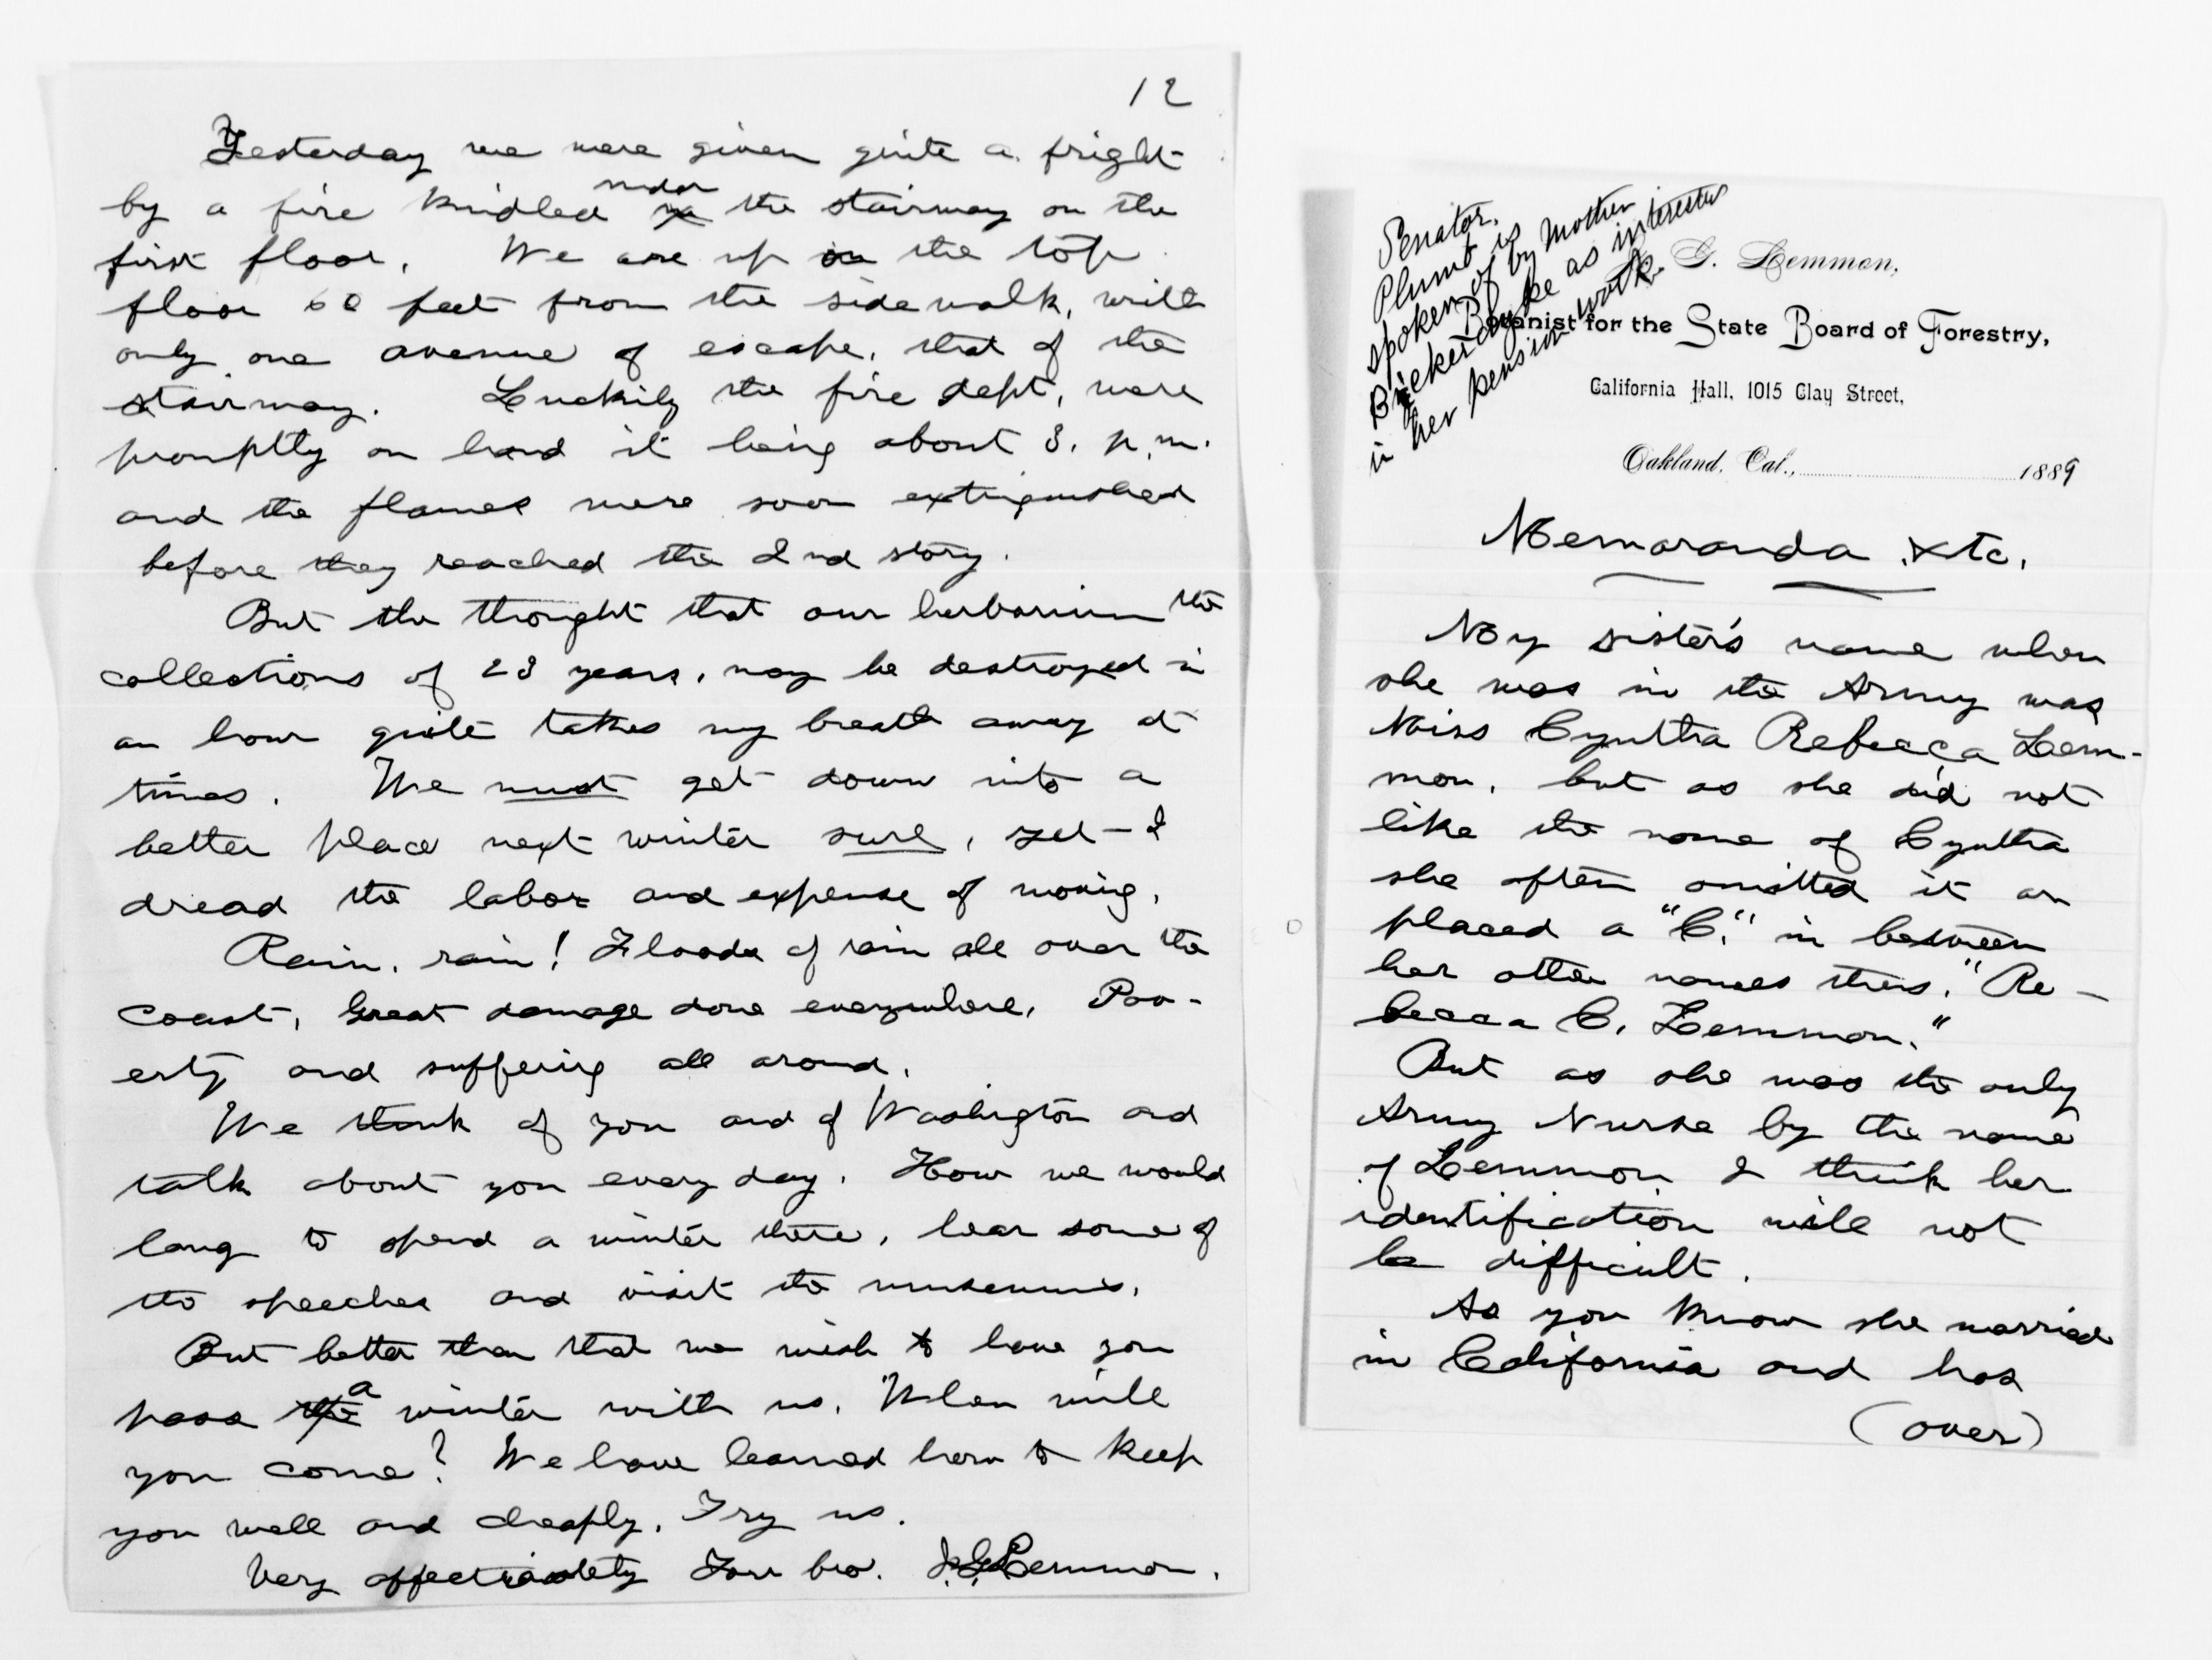 12
Yesterday we were given quite a fright
by a fire kindled under the stairway on the
first floor. We are up in the top
floor 60 feet from the sidewalk, with
only one avenue of escape, that of the
stairway. Luckily the fire dept, were
promptly on hand it being about 3. p.m.
and the flames were soon extinguished
before they reached the 2nd story.
But the thought that our herbarium the
collections of 23 years, may be destroyed in
an hour quite takes my breath away at
times. We must get down into a
better place next winter sure, yet I
dread the labor and expense of moving.
Rain, rain! Floods of rain all over the
coast, Great damage done everywhere, Pov-
erty and suffering all around.
We think of you and of Washington and
talk about you every day. How we would
long to spend a winter there, hear some of
the speeches and visit the museums.
But better than that we wish to have you
pass a winter with us. When will
you come? We have learned how to keep
you well and cheaply. Try us.
Very affectionately Your bro. J.G. Lemmon.
Senator.
Plumb is
spoken of by Mother
Bickerdyke as interested
in her pension work.
G. Lemmon,
Botanist for the State Board of Forestry,
California Hall, 1015 Clay Street,
Oakland, Cal., 1889
Memoranda, &tc.
My sister's name when
she was in the Army was
Miss Cynthia Rebecca Lem-
mon, but as she did not
like the name of Cynthia
she often omitted it or
placed a "C." in between
her other names thus, "Re-
becca C. Lemmon."
But as she was the only
Army Nurse by the name
of Lemmon I think her
identification will not
be difficult.
As you know she married
in California and has
(over)